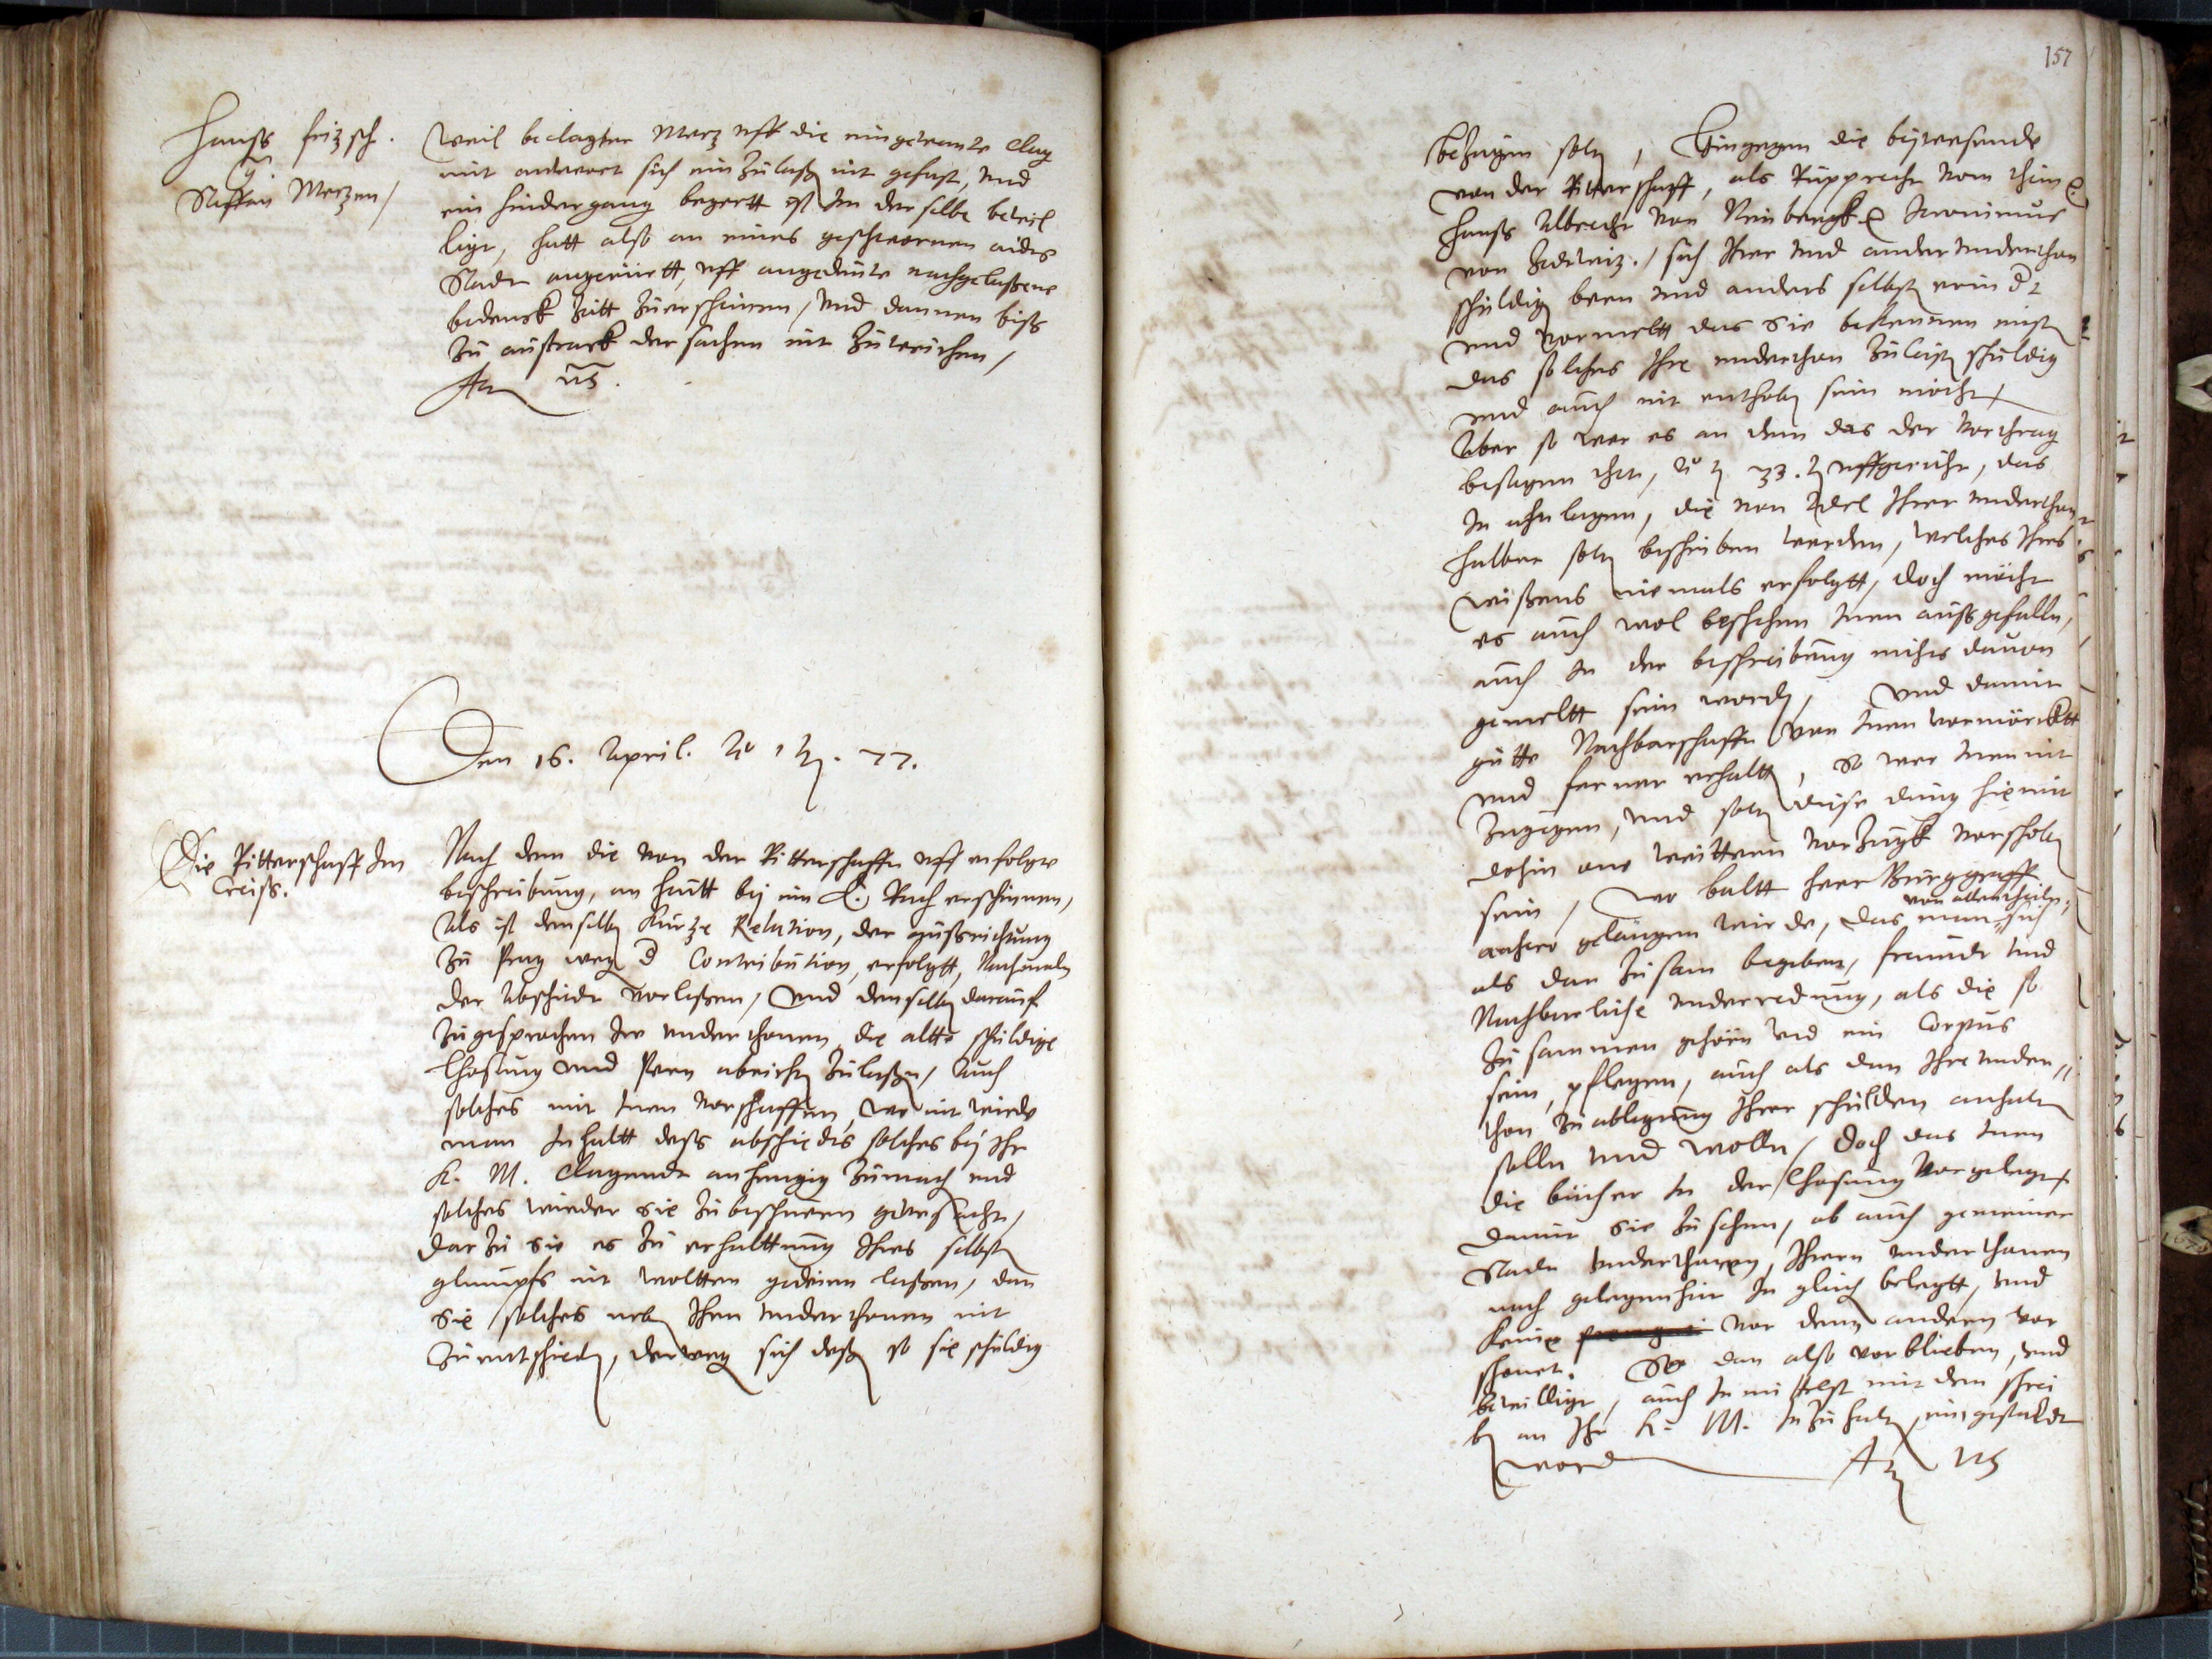 Hanss fritzsch.
Weil beclagter Mertz uff die eingewante Clag
g.
mit andwort sich ein Zulaßen nit gefast, und
Steffan Mertzen /
ein hindergang begertt ist Im derselbe bewil
ligt, hatt also an eines geschwornen aides
Stadt angerürtt, uff angedeute nachgelaßene
bedenck Zeitt Zuerscheinen / und dannen biss
Zu austrack der sachen nit Zuweichen /
Den 16. April. 77.
Die Ritterschafft Im
Creiss.
Nach dem die von der Ritterschafft uff erfolgte
beschreibung, an heutt bei eim E. Rath erschinnen,
Als ist denselben kurtze Relation, der aussrichtung
Zu Prag wegen der Contribution, erfolgtt, Nachmals
der Abschiedt vorlessen / und denselben darauf
Zugesprochen Ire underthonen die altte schuldige
Lhosung und Peen abrichten Zulaßen / Auch
solches mit Inen vorschaffen, wo nit wirde
man Inhaltt dess abschiedts solches bei Ihr
K. M. Clagendt anhengig Zumachen und
solches wieder sie Zubeschweren
darzu sie es Zu erhalttung Ihres selbst
glimpfs nit woltten gedeien lassen, dan
sie solches neben Ihren underthonen nit
so sie schuldig
157
bezaigen solten, Hingegen die beiwesende
von der Ritterschafft, als Rupprecht vom Thein
Hanss Albrecht von Neinbergk Ieronimus
von Zedtwitz. / sich Irer und ander underthon
schuldigen beern und anders selbst erindert
und vormeltt das sie bekennen musten
das solches Ihre underthon Zulaisten schuldig
und auch nit enthoben sein mochten
Aber so wer es an dem das der Vorthrag
besagen thet, uffgericht, das
In anlagen, die von Adel Ihrer underthon
halber solten beschriben werden, welches Ihres
wissens niemals erfolgtt, doch möcht
es auch wol beschehen Inen aussgefallen,
auch In der beschreibung nichts dauon
gemeltt sein worden, Und damit
gutte Nachbarschafft von Inen vormörcktt
und ferner erhaltten, so wer Inen nit
Zugegen, und solten diese ding hiemit
dohin one weittern vorzugk vorschoben
sein, wo baltt Herr Burggraff
von allen theilen
anhero gelangen wirde, das man sich
als dan Zusam begeben, freundt und
Nachbarliche underredung, als die so
Zusammen gehörn und ein Corpus
sein, pflegen, auch als dan Ihre under„
thon Zu ablegung Ihrer schulden anhalten
sollen und wollen / Doch das Inen
die bücher In der Lhosung vorgelegt
damit sie Zusehen, ob auch gemeiner
Stadt underthonen, Ihren underthonen
nach gelegenheit In gleich belegtt, und
keine vor dem andern vor
schonet. So dan also vorblieben, und
bewilligt, auch In mittelst mit dem schrei
ben an Ihr K. M. Inzuhalten eingestaldt
worden